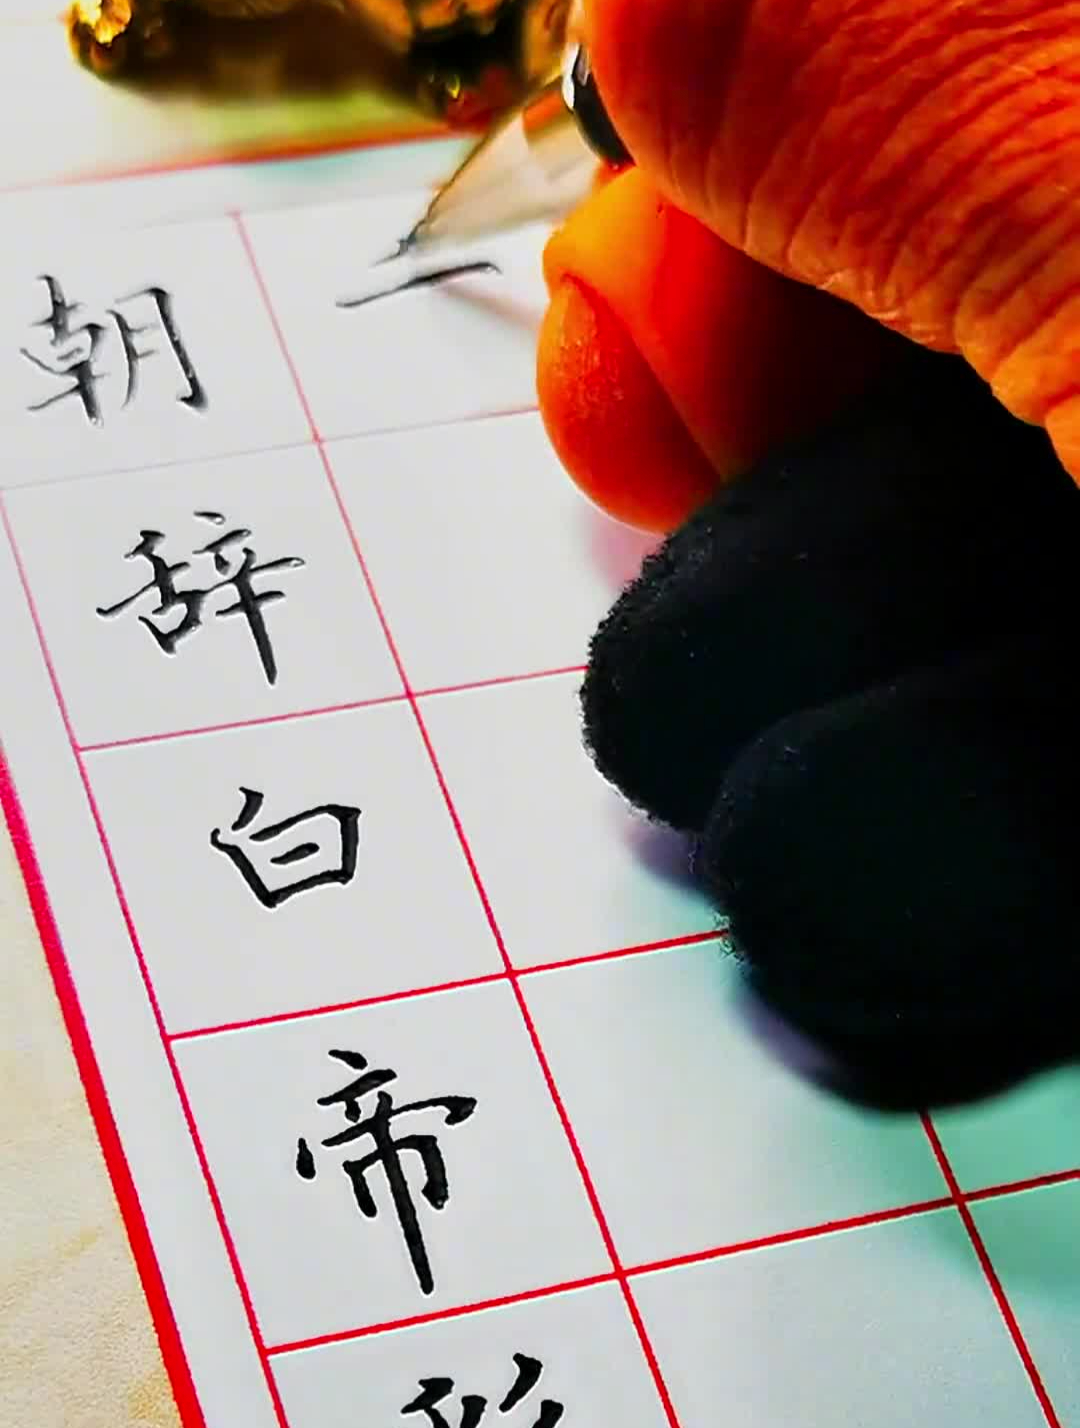 朝辞白帝